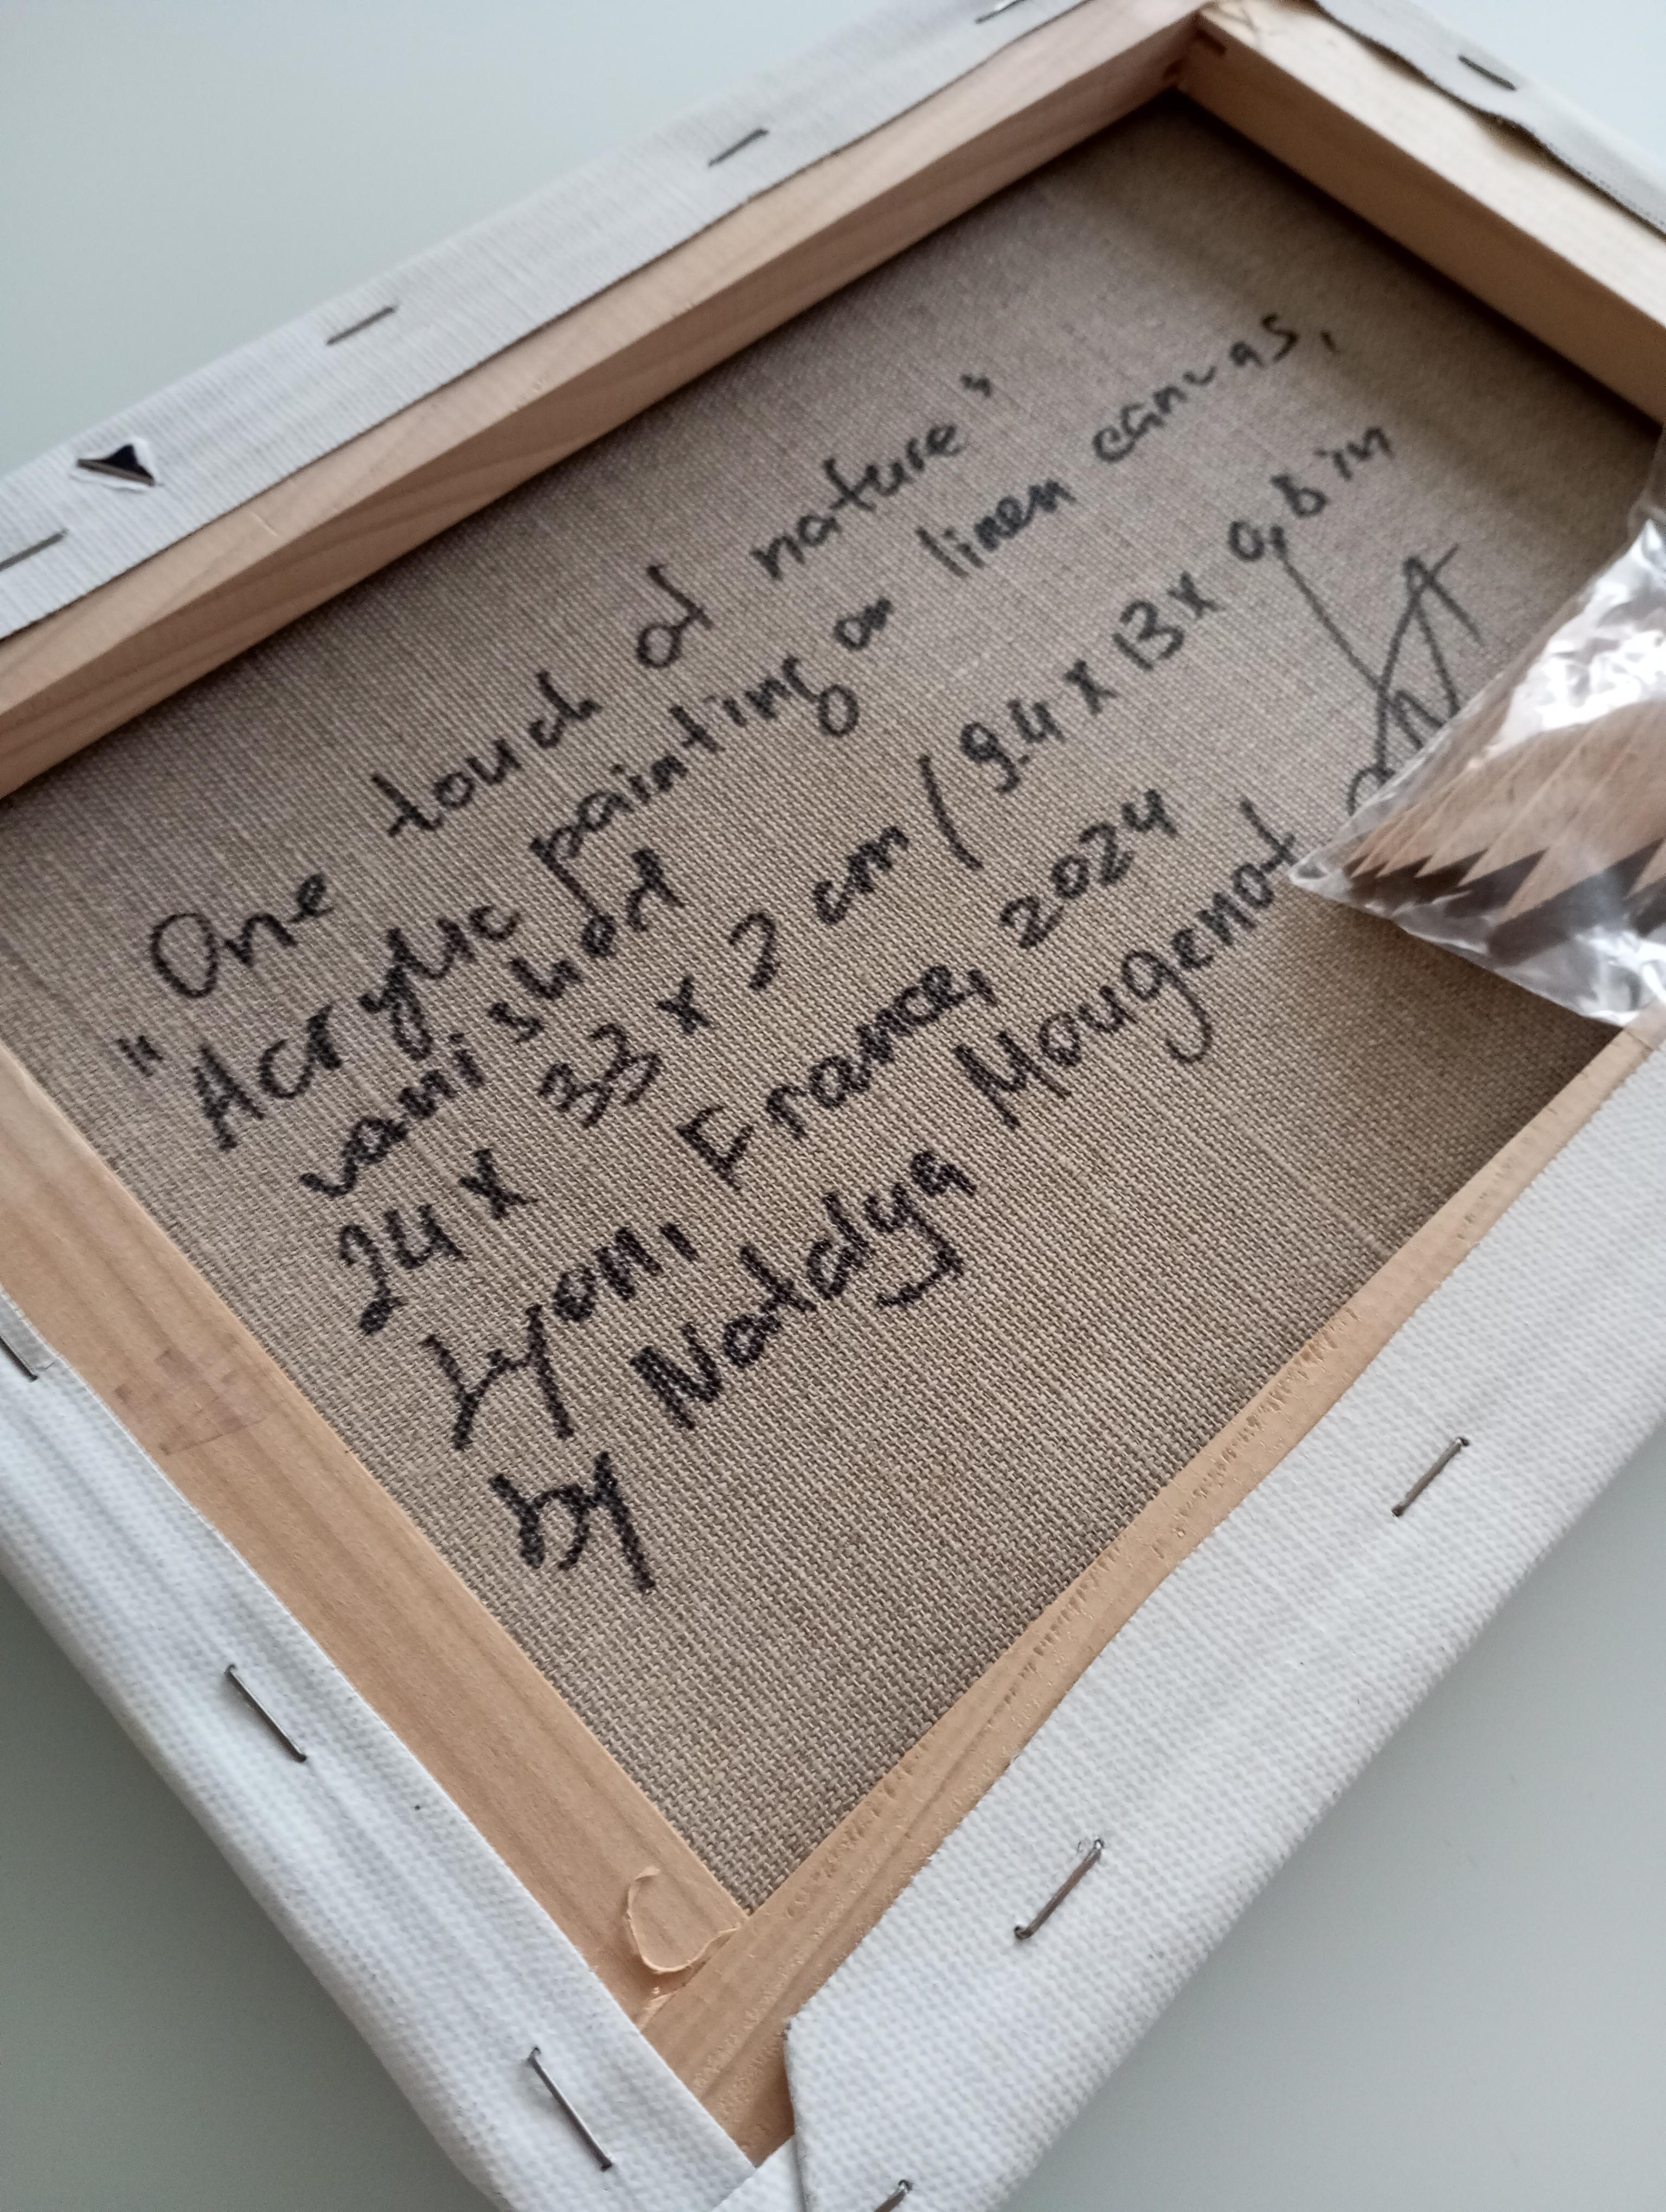 "One touch of nature"
Acrylic painting on linen canvas,
varnished
24 x 33 x 2 cm / 9.4 x 13 x 0,8 in
Lyon, France, 2024
by Natalya Mougenot